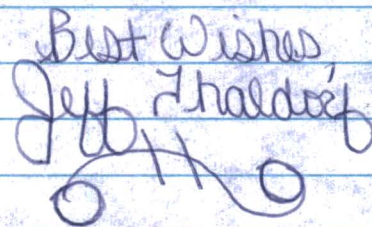 Best Wishes,
Jeff Thaldorf